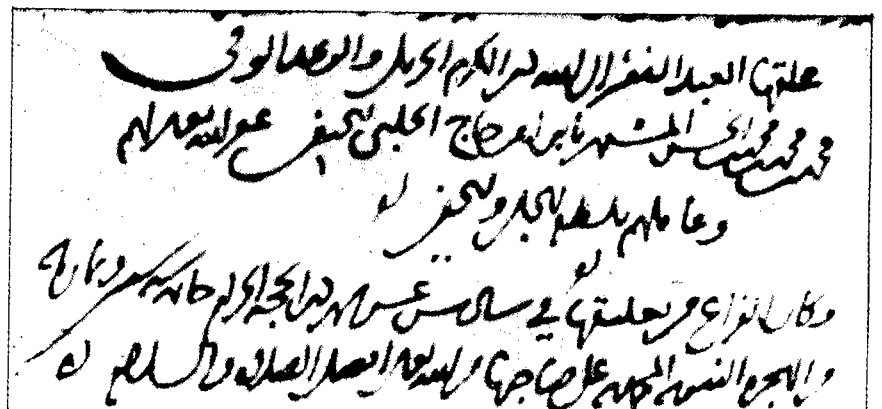 علقها العبد الفقير الى الله ذي الكرم الجزيل والوعد الوفي
محمد بن محمد بن محمد بن الحسن المشتهر بابن امير حاج الحلبي الحنفي غفر الله تعالى لهم
وعاملهم بلطفه الجلي والخفي
وكان الفراغ من تعليقها في سادس عشر شهر ذي الحجة الحرام خاتمة سنة وثمان مائة
من الهجرة النبوية المحمدية على صاحبها من الله تعالى افضل الصلاة والسلام